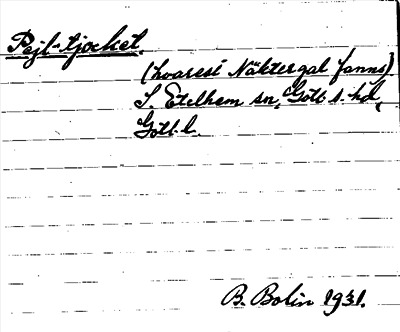 Pejl-tjocket.
(hvarest Näktergal fanns)
I. Etelhem sn, Gotl. s. hd,
Gotl. l.
B. Bolin 1931.